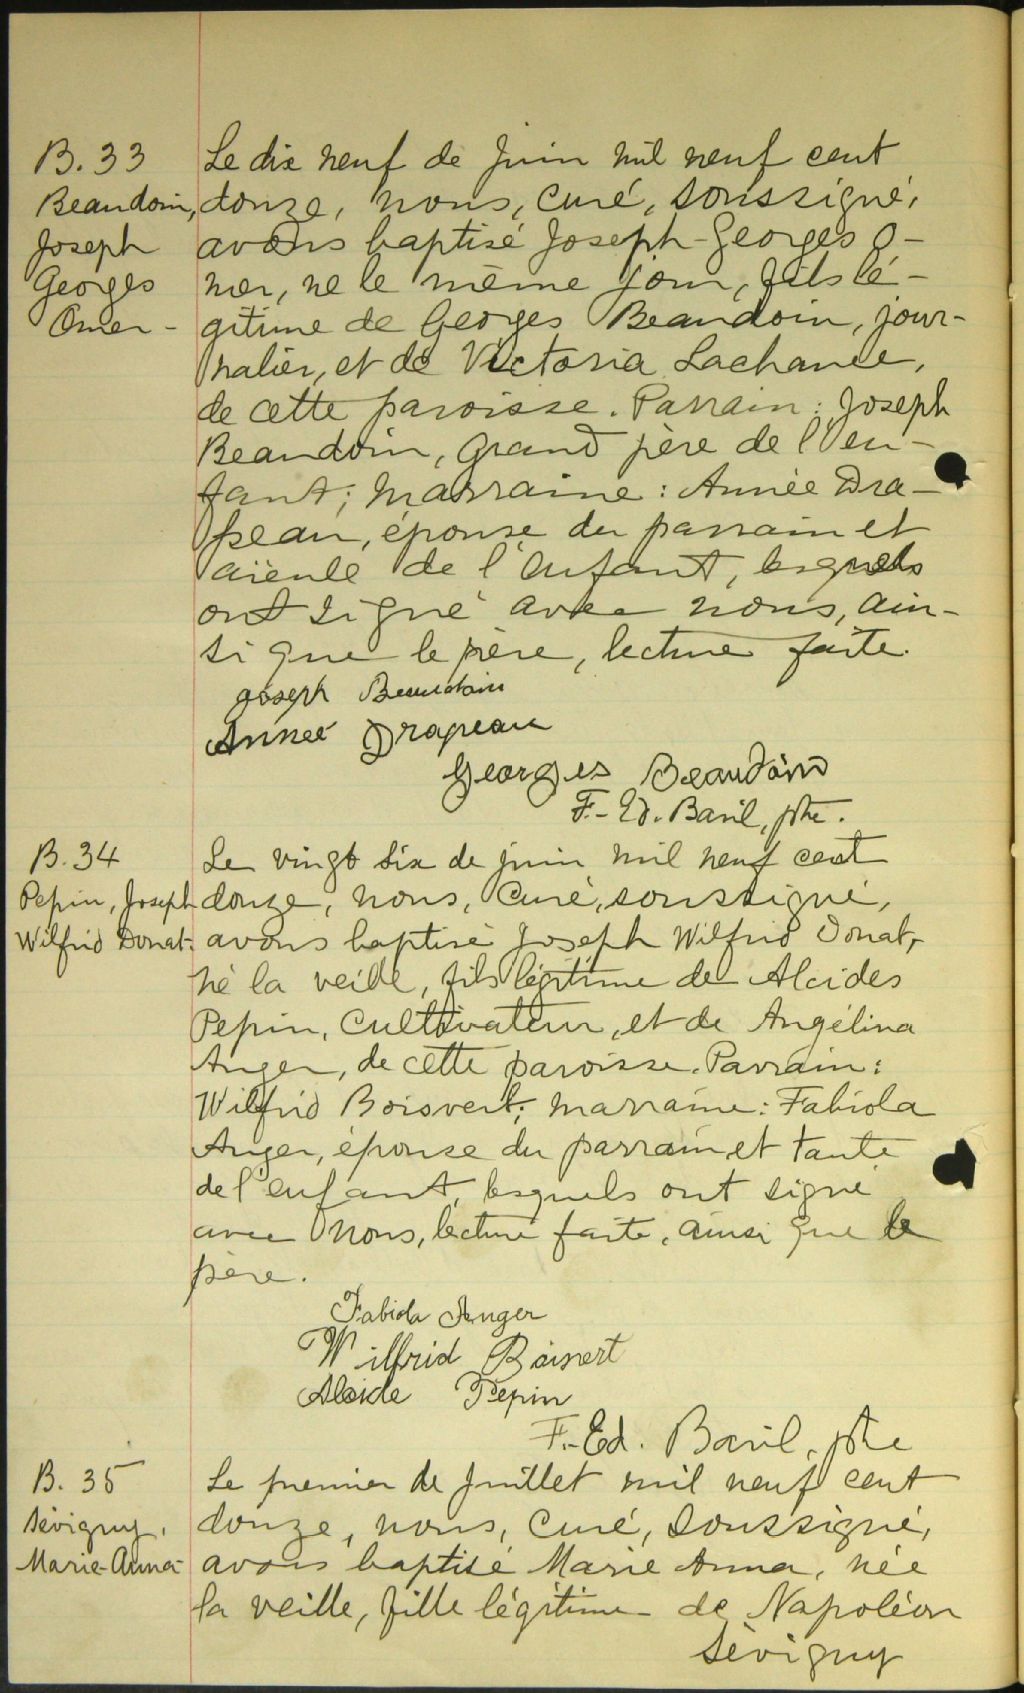 B. 33
Beaudoin,
Joseph
Georges
Omer -
Le dix neuf de Juin mil neuf cent
douze, nous, curé, soussigné,
avons baptisé Joseph-Georges O-
mer, né le même jour, fils lé-
gitime de Georges Beaudoin, jour-
nalier, et de Victoria Lachance,
de cette paroisse. Parrain : Joseph
Beaudoin, grand père de l'en-
fant; marraine : Année Dra-
peau, épouse du parrain et
aïeule de l'enfant, lesquels
ont signé avec nous, ain-
si que le père, lecture faite.
Joseph Beaudoin
Année Drapeau
Georges Beaudoin
F.-Ed. Baril, ptre.
B. 34
Pepin, Joseph
Wilfrid Donat.
Le vingt six de juin mil neuf cent
douze, nous, curé, soussigné,
avons baptisé Joseph Wilfrid Donat,
né la veille, fils légitime de Alcides
Pepin, cultivateur, et de Angélina
Anger, de cette paroisse. Parrain :
Wilfrid Boisvert; marraine : Fabiola
Anger, épouse du parrain, et tante
de l'enfant, lesquels ont signé
avec nous, lecture faite, ainsi que le
père.
Fabiola Anger
Wilfrid Boisvert
Alcide Pepin
F.-Ed. Baril, ptre
B. 35
Sévigny,
Marie-Anna-
Le premier de Juillet mil neuf cent
douze, nous, curé, soussigné,
avons baptisé Marie Anna, née
la veille, fille légitime de Napoléon
Sévigny